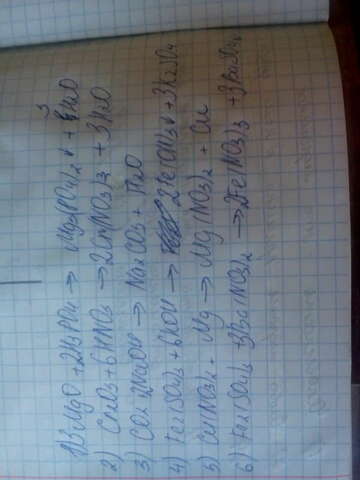 1) 3MgO + 2H3PO4 → Mg3(PO4)2 ↓ + 3H2O
2) Cr2O3 + 6HNO3 → 2Cr(NO3)3 + 3H2O
3) CO2 + 2NaOH → Na2CO3 + H2O
4) Fe2(SO4)3 + 6KOH → 2Fe(OH)3↓ + 3K2SO4
5) Cu(NO3)2 + Mg → Mg(NO3)2 + Cu
6) Fe2(SO4)3 + 3Ba(NO3)2 → 2Fe(NO3)3 + 3BaSO4